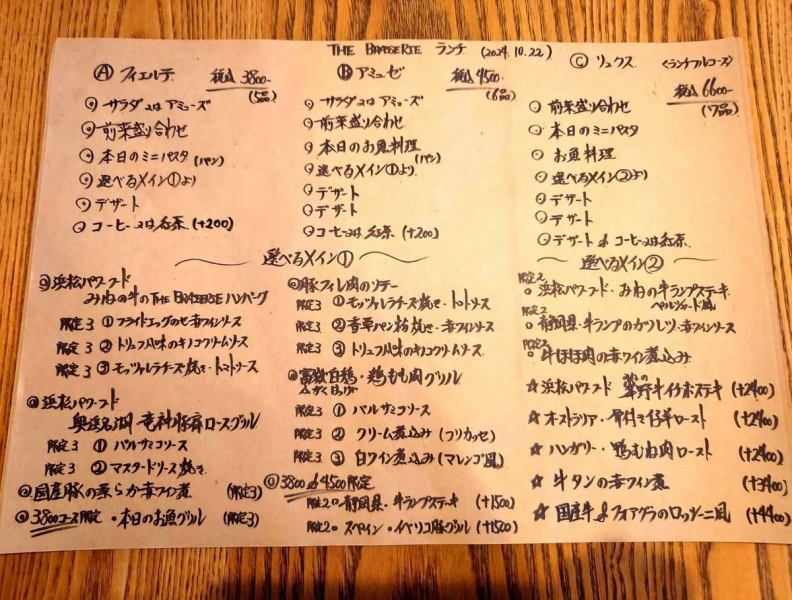 THE BRASSERIE ランチ (2024.10.22)
Ⓐ フィエルテ 税込 3800-
(5品)
サラダ又はアミューズ
前菜盛り合わせ
本日のミニパスタ (パン)
選べるメイン①より
デザート
コーヒー又は紅茶 (+200)
Ⓑ アミュゼ 税込 4500-
(6品)
サラダ又はアミューズ
前菜盛り合わせ
本日のお魚料理
(パン)
選べるメイン①より
デザート
デザート
コーヒー又は紅茶 (+200)
Ⓒ リュクス <ランチフルコース>
税込 6600-
(7品)
前菜盛り合わせ
本日のミニパスタ
お魚料理
選べるメイン②より
デザート
デザート
デザート & コーヒー又は紅茶
選べるメイン①
浜松パワーフード
みねの牛の THE BRASERIE ハンバーグ
限定3 ① フライドエッグのせ・赤ワインソース
限定3 ② トリュフ風味のキノコクリームソース
限定3 ③ モッツァレラチーズ焼き・トマトソース
浜松パワーフード
奥浜名湖・竜神豚肩ロースグリル
限定3 ① バルサミコソース
限定3 ② マスタードソース焼き
国産豚の柔らか赤ワイン煮 (限定3)
3800コース限定・本日のお魚グリル (限定3)
豚フィレ肉のソテー
限定3 ① モッツァレラチーズ焼き・トマトソース
限定3 ② 香草パン粉焼き・赤ワインソース
限定3 ③ トリュフ風味のキノコクリームソース
富嶽白鶏・鶏もも肉グリル
ふがくはっけい
限定3 ① バルサミコソース
限定3 ② クリーム煮込み (フリカッセ)
限定3 ③ 白ワイン煮込み (マレンゴ風)
3800 & 4500限定
限定2 静岡県・牛ランプステーキ (+1500)
限定2 スペイン・イベリコ豚グリル (+1500)
選べるメイン②
限定2
浜松パワーフード・みねの牛ランプステーキ
限定2
静岡県・牛ランプのカツレツ・赤ワインソース
限定2
牛ほほ肉の赤ワイン煮込み
☆ 浜松パワーフード 峯野牛イチボステーキ (+2400)
☆ オーストラリア・骨付き仔羊ロースト (+2400)
☆ ハンガリー・鴨むね肉ロースト (+2400)
☆ 牛タンの赤ワイン煮 (+3400)
☆ 国産牛&フォアグラのロッシーニ風 (+4400)